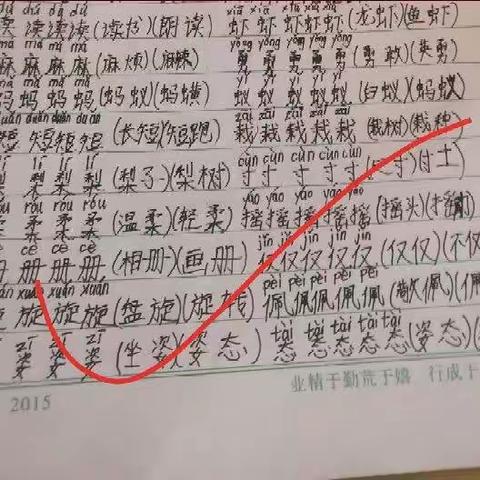 dú dú dú dú xiā xiā xiā xiā xiā
读 读读读(读书)(朗读) 虾 虾虾虾虾(龙虾)(鱼虾)
má má má má yǒng yǒng yǒng yǒng yǒng
麻 麻 麻 麻(麻烦)(麻辣) 勇 勇 勇 勇 勇(勇敢)(英勇)
mǎ mǎ mǎ mǎ yǐ yǐ yǐ yǐ yǐ
蚂 蚂 蚂 蚂(蚂蚁)(蚂蟥) 蚁 蚁 蚁 蚁 蚁(白蚁)(蚂蚁)
duǎn duǎn duǎn duǎn zāi zāi
短 短短 短(长短)(短跑) 栽 栽 栽 栽 栽(栽树)(栽种)
lí lí lí cùn cùn cùn cùn cùn
梨 梨 梨(梨子)(梨树) 寸 寸 寸 寸 寸
róu róu róu yáo yáo yáo yáo yáo
柔 柔 柔(温柔)(轻柔) 摇摇摇摇摇(摇头)
cè cè cè cè jǐn jǐn jǐn jǐn jǐn
册 册 册 册(相册)(画册) 仅仅仅仅仅(仅仅)(不仅
xuán xuán xuán pèi pèi pèi pèi pèi
旋 旋旋(盘旋)(旋转) 佩佩佩佩佩(敬佩)
zī zī zī tài tài tài tài tài
姿 姿 姿(坐姿)(姿态) 态 态 态 态 态(姿态)
2015 业精于勤荒于嬉 行成